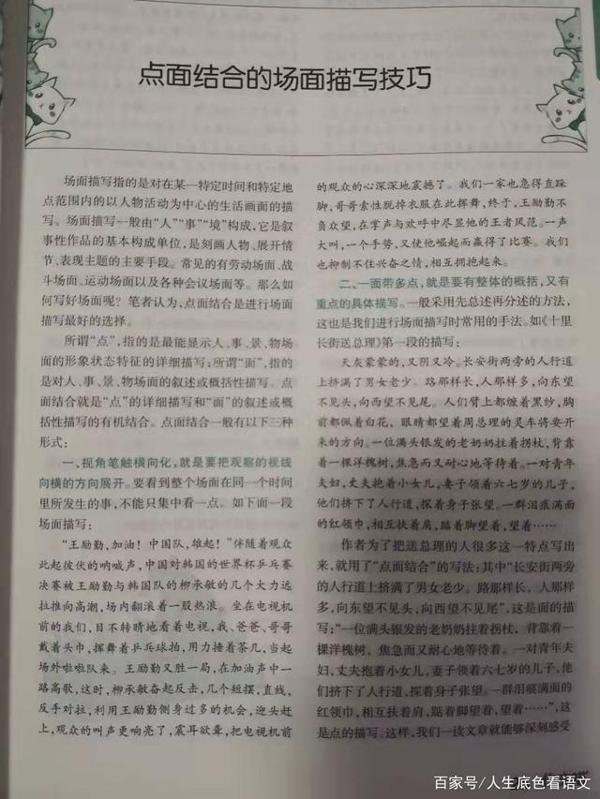 点面结合的场面描写技巧
场面描写指的是对在某一特定时间和特定地
点范围内的以人物活动为中心的生活画面的描
写。场面描写一般由“人”“事”“境”构成,它是叙
事性作品的基本构成单位,是刻画人物、展开情
节、表现主题的主要手段。常见的有劳动场面、战
斗场面、运动场面以及各种会议场面等。那么如
何写好场面呢?笔者认为,点面结合是进行场面
描写最好的选择。
所谓“点”,指的是最能显示人、事、景、物场
面的形象状态特征的详细描写;所谓“面”,指的
是对人、事、景、物场面的叙述或概括性描写。点
面结合就是“点”的详细描写和“面”的叙述或概
括性描写的有机结合。点面结合一般有以下三种
形式:
一、视角笔触横向化,就是要把观察的视线
向横的方向展开。要看到整个场面在同一个时间
里所发生的事,不能只集中看一点。如下面一段
场面描写:
“王励勤,加油!中国队,雄起!”伴随着观众
此起彼伏的呐喊声,中国对韩国的世界杯乒乓赛
决赛被王励勤与韩国队的柳承敏的几个大力远
拉推向高潮,场内翻滚着一股热浪。坐在电视机
前的我们,目不转睛地看着电视,我、爸爸、哥哥
戴着头巾,挥舞着乒乓球拍,用力捶着茶几,当起
场外啦啦队来。王励勤又胜一局,在加油声中一
路高歌,这时,柳承敏奋起反击,几个短摆,直线,
反手对拉,利用王励勤侧身过多的机会,迎头赶
上,观众的叫声更响亮了,震耳欲聋,把电视机前
的观众的心深深地震撼了。我们一家也急得直跺
脚,哥哥索性脱掉衣服在此挥舞,终于,王励勤不
负众望,在掌声与欢呼中尽显他的王者风范。一声
大叫,一个手势,又使他崛起而赢得了比赛。我们
也抑制不住兴奋之情,相互拥抱起来。
二、一面带多点,就是要有整体的概括,又有
重点的具体描写。一般采用先总述再分述的方法,
这也是我们进行场面描写时常用的手法。如《十里
长街送总理》第一段的描写:
天灰蒙蒙的,又阴又冷。长安街两旁的人行道
上挤满了男女老少。路那样长,人那样多,向东望
不见头,向西望不见尾。人们臂上都缠着黑纱,胸
前都佩着白花,眼睛都望着周总理的灵车将要开
来的方向。一位满头银发的老奶奶拄着拐杖,背靠
着一棵洋槐树,焦急而又耐心地等待着。一对青年
夫妇,丈夫抱着小女儿,妻子领着六七岁的儿子,
他们挤下了人行道,探着身子张望。一群泪痕满面
的红领巾,相互扶着肩,踮着脚望着,望着……
作者为了把送总理的人很多这一特点写出
来,就用了“点面结合”的写法;其中“长安街两旁
的人行道上挤满了男女老少。路那样长,人那样
多,向东望不见头,向西望不见尾”,这是面的描
写;“一位满头银发的老奶奶拄着拐杖,背靠着一
棵洋槐树,焦急而又耐心地等待着。一对青年夫
妇,丈夫抱着小女儿,妻子领着六七岁的儿子,他
们挤下了人行道,探着身子张望。一群泪痕满面的
红领巾,相互扶着肩,踮着脚望着,望着……”,这
是点的描写。这样,我们一读文章就能够深刻感受
百家号/人生底色看语文